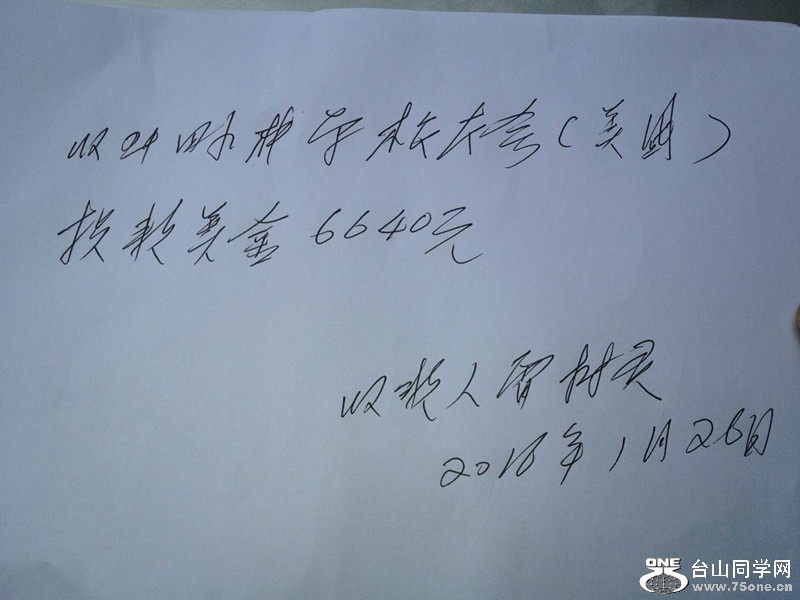 收到 学校 (美国)
捐款美金6640元
收款人雷树
2016年1月26日
ONE
台山同学网
www.75one.cn